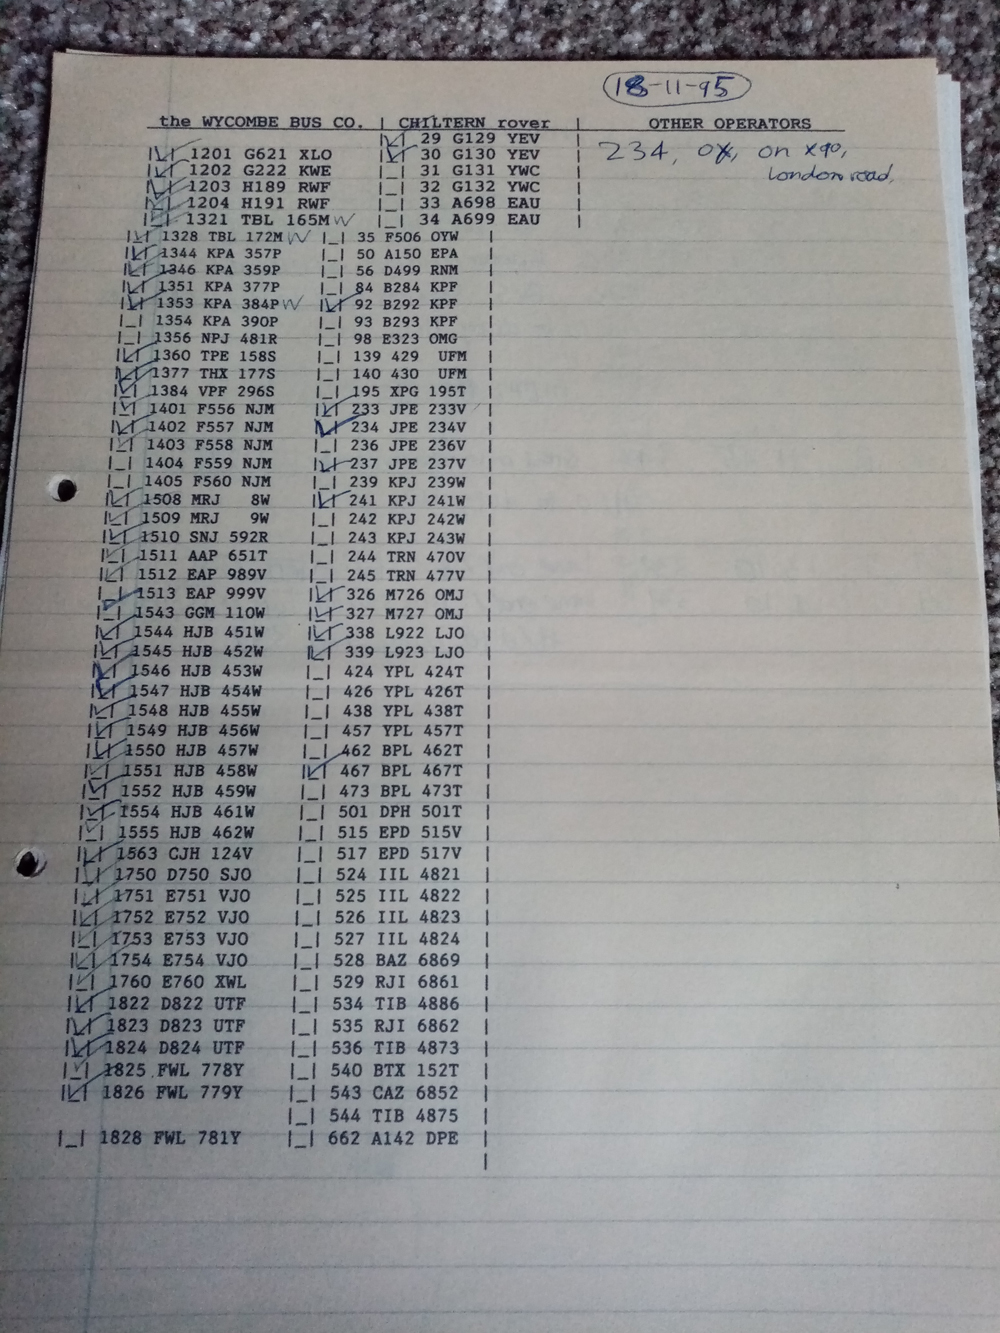 18-11-95
the WYCOMBE BUS CO. | CHILTERN rover | OTHER OPERATORS
|_| 29 G129 YEV
|_| 1201 G621 XLO |_| 30 G130 YEV 234, OX, on X90,
|_| 1202 G222 KWE |_| 31 G131 YWC London road,
|_| 1203 H189 RWF |_| 32 G132 YWC
|_| 1204 H191 RWF |_| 33 A698 EAU
|_| 1321 TBL 165M W |_| 34 A699 EAU
|_| 1328 TBL 172M W |_| 35 F506 OYW |
|_| 1344 KPA 357P |_| 50 A150 EPA |
|_| 1346 KPA 359P |_| 56 D499 RNM |
|_| 1351 KPA 377P |_| 84 B284 KPF |
|_| 1353 KPA 384P W |_| 92 B292 KPF |
|_| 1354 KPA 390P |_| 93 B293 KPF |
|_| 1356 NPJ 481R |_| 98 E323 OMG |
|_| 1360 TPE 158S |_| 139 429 UFM |
|_| 1377 THX 177S |_| 140 430 UFM |
|_| 1384 VPF 296S |_| 195 XPG 195T |
|_| 1401 F556 NJM |_| 233 JPE 233V |
|_| 1402 F557 NJM |_| 234 JPE 234V |
|_| 1403 F558 NJM |_| 236 JPE 236V |
|_| 1404 F559 NJM |_| 237 JPE 237V |
|_| 1405 F560 NJM |_| 239 KPJ 239W |
|_| 1508 MRJ 8W |_| 241 KPJ 241W |
|_| 1509 MRJ 9W |_| 242 KPJ 242W |
|_| 1510 SNJ 592R |_| 243 KPJ 243W |
|_| 1511 AAP 651T |_| 244 TRN 470V |
|_| 1512 EAP 989V |_| 245 TRN 477V |
|_| 1513 EAP 999V |_| 326 M726 OMJ |
|_| 1543 GGM 110W |_| 327 M727 OMJ |
|_| 1544 HJB 451W |_| 338 L922 LJO |
|_| 1545 HJB 452W |_| 339 L923 LJO |
|_| 1546 HJB 453W |_| 424 YPL 424T |
|_| 1547 HJB 454W |_| 426 YPL 426T |
|_| 1548 HJB 455W |_| 438 YPL 438T |
|_| 1549 HJB 456W |_| 457 YPL 457T |
|_| 1550 HJB 457W |_| 462 BPL 462T |
|_| 1551 HJB 458W |_| 467 BPL 467T |
|_| 1552 HJB 459W |_| 473 BPL 473T |
|_| 1554 HJB 461W |_| 501 DPH 501T |
|_| 1555 HJB 462W |_| 515 EPD 515V |
|_| 1563 CJH 124V |_| 517 EPD 517V |
|_| 1750 D750 SJO |_| 524 IIL 4821 |
|_| 1751 E751 VJO |_| 525 IIL 4822 |
|_| 1752 E752 VJO |_| 526 IIL 4823 |
|_| 1753 E753 VJO |_| 527 IIL 4824 |
|_| 1754 E754 VJO |_| 528 BAZ 6869 |
|_| 1760 E760 XWL |_| 529 RJI 6861 |
|_| 1822 D822 UTF |_| 534 TIB 4886 |
|_| 1823 D823 UTF |_| 535 RJI 6862 |
|_| 1824 D824 UTF |_| 536 TIB 4873 |
|_| 1825 FWL 778Y |_| 540 BTX 152T |
|_| 1826 FWL 779Y |_| 543 CAZ 6852 |
|_| 544 TIB 4875 |
|_| 1828 FWL 781Y |_| 662 A142 DPE |